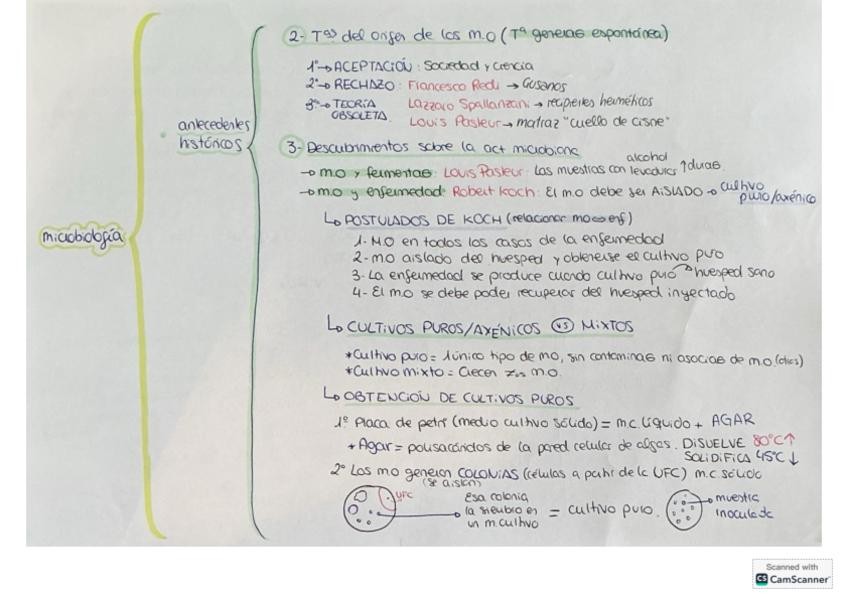 microbiología
antecedentes
históricos
2- Tªs del origen de los m.o (Tª generac espontánea)
1º→ ACEPTACIÓN: Sociedad y Ciencia
2º→ RECHAZO: Francesco Redi → Gusanos
3º→ TEORÍA OBSOLETA. Lazzaro Spallanzani → recipientes herméticos
Louis Pasteur → matraz "cuello de cisne"
3- Descubrimientos sobre la act microbiana
→ m.o y fermentac: Louis Pasteur: Las muestras con levaduras ↑ alcohol
→ m.o y enfermedad: Robert Koch: El m.o debe ser AISLADO → cultivo puro/axénico
↳ POSTULADOS DE KOCH (relacionar mo ↔ enf)
1- MO en todos los casos de la enfermedad
2- mo aislado del huesped y obtenerse el cultivo puro
3- La enfermedad se produce cuando cultivo puro → huesped sano
4- El m.o se debe poder recuperar del huesped inyectado
↳ CULTIVOS PUROS/AXÉNICOS vs MIXTOS
*Cultivo puro = 1 único tipo de mo, sin contaminac ni asociac de m.o (otros)
*Cultivo mixto = Crecen ≠s m.o.
↳ OBTENCIÓN DE CULTIVOS PUROS
1º Placa de petri (medio cultivo sólido) = m.c líquido + AGAR
* Agar = polisacáridos de la pared celular de algas. DISUELVE 80ºC ↑
SOLIDIFICA 45ºC ↓
2º Los mo generan COLONIAS (células a partir de 1 UFC) m.c sólido
(se aislan)
UFC
Esa colonia
la siembro en
un m.cultivo
= cultivo puro.
muestra
inoculada
Scanned with
CS CamScanner